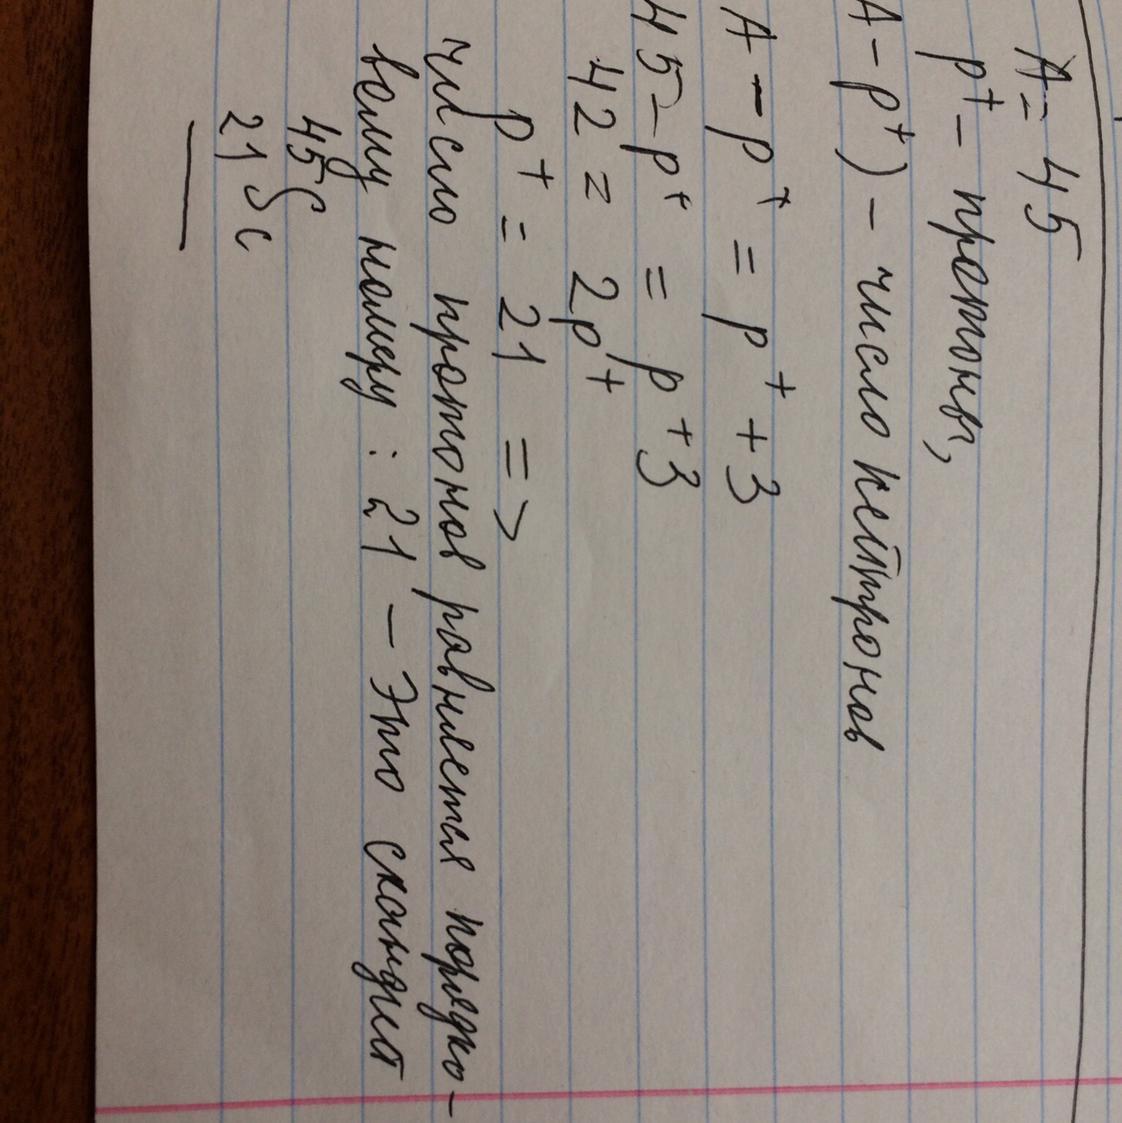 A = 45
p⁺ - протоны,
A - p⁺) - число нейтронов
A - p⁺ = p⁺ + 3
45 - p⁺ = p⁺3
42 = 2p⁺
p⁺ = 21 =>
число протонов равняется порядко-
вому номеру : 21 - Это скандий
45 S
21 Sc